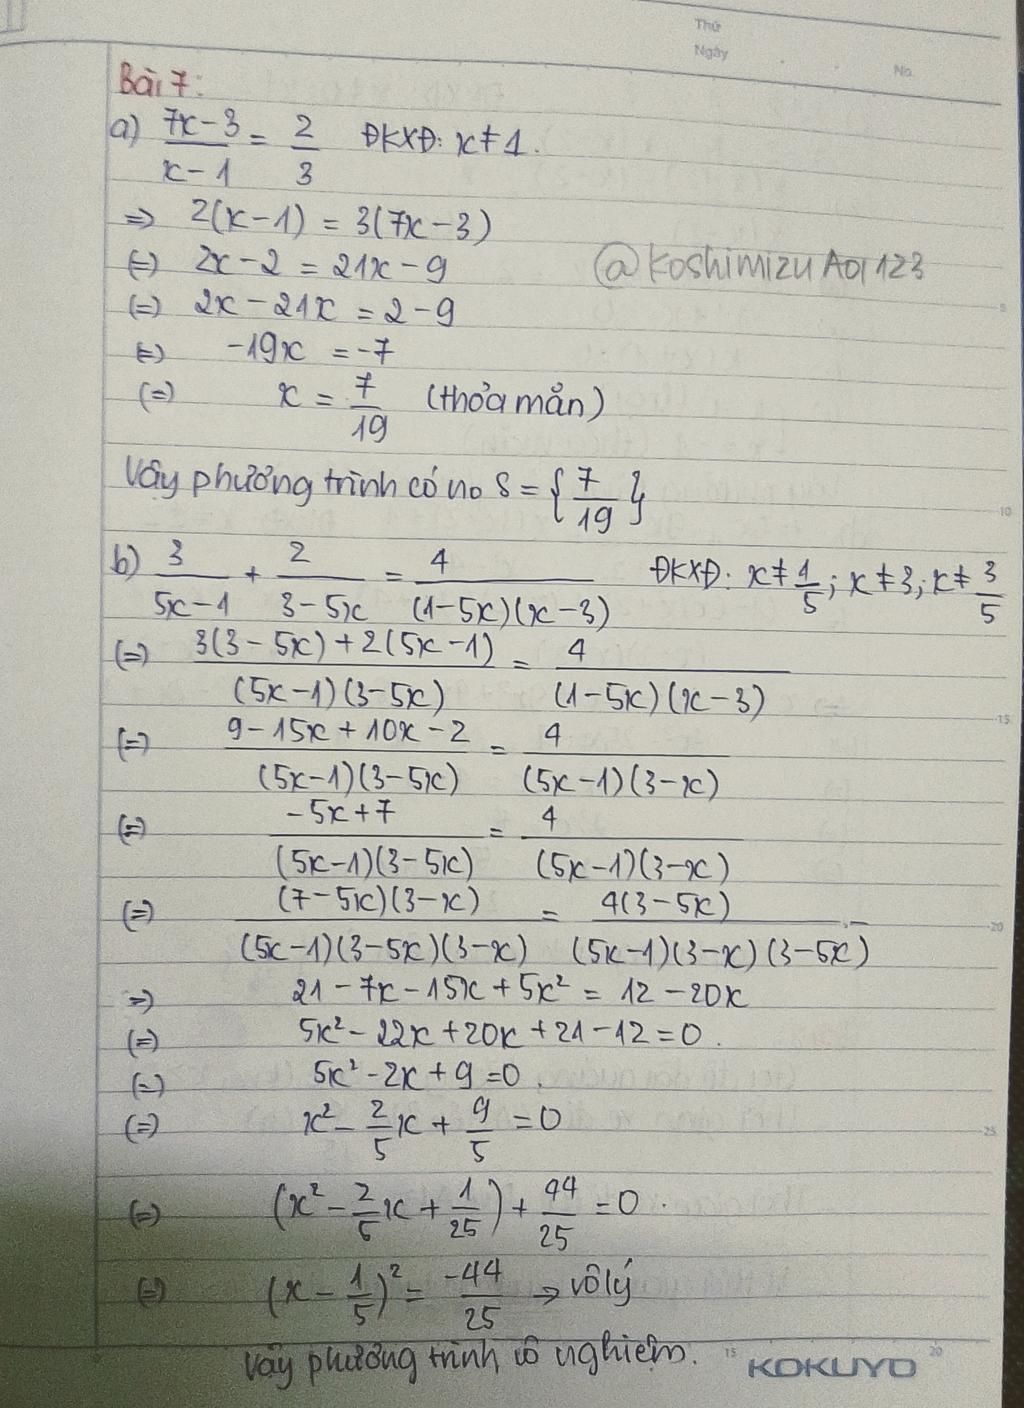 Thứ
Ngày
No.
Bài 7:
a) (7x-3)/(x-1) = 2/3 ĐKXĐ: x ≠ 1.
=> 2(x-1) = 3(7x-3)
(=) 2x-2 = 21x-9
@KoshimizuAoi123
(=) 2x-21x = 2-9
(=) -19x = -7
(=) x = 7/19 (thỏa mãn)
Vậy phương trình có no S = {7/19}
b) 3/(5x-1) + 2/(3-5x) = 4/((1-5x)(x-3)) ĐKXĐ: x ≠ 1/5; x ≠ 3; x ≠ 3/5
(=) (3(3-5x)+2(5x-1))/((5x-1)(3-5x)) = 4/((1-5x)(x-3))
(=) (9-15x+10x-2)/((5x-1)(3-5x)) = 4/((5x-1)(3-x))
(=) (-5x+7)/((5x-1)(3-5x)) = 4/((5x-1)(3-x))
(=) ((7-5x)(3-x))/((5x-1)(3-5x)(3-x)) = (4(3-5x))/((5x-1)(3-x)(3-5x))
=> 21-7x-15x+5x² = 12-20x
(=) 5x²-22x+20x+21-12=0.
(=) 5x²-2x+9=0.
(=) x²-2/5x+9/5=0
(=) (x²-2/5x+1/25)+44/25=0.
(=) (x-1/5)²=-44/25 => vô lý
Vậy phương trình vô nghiệm.
5
10
15
20
25
15
20
KOKUYO